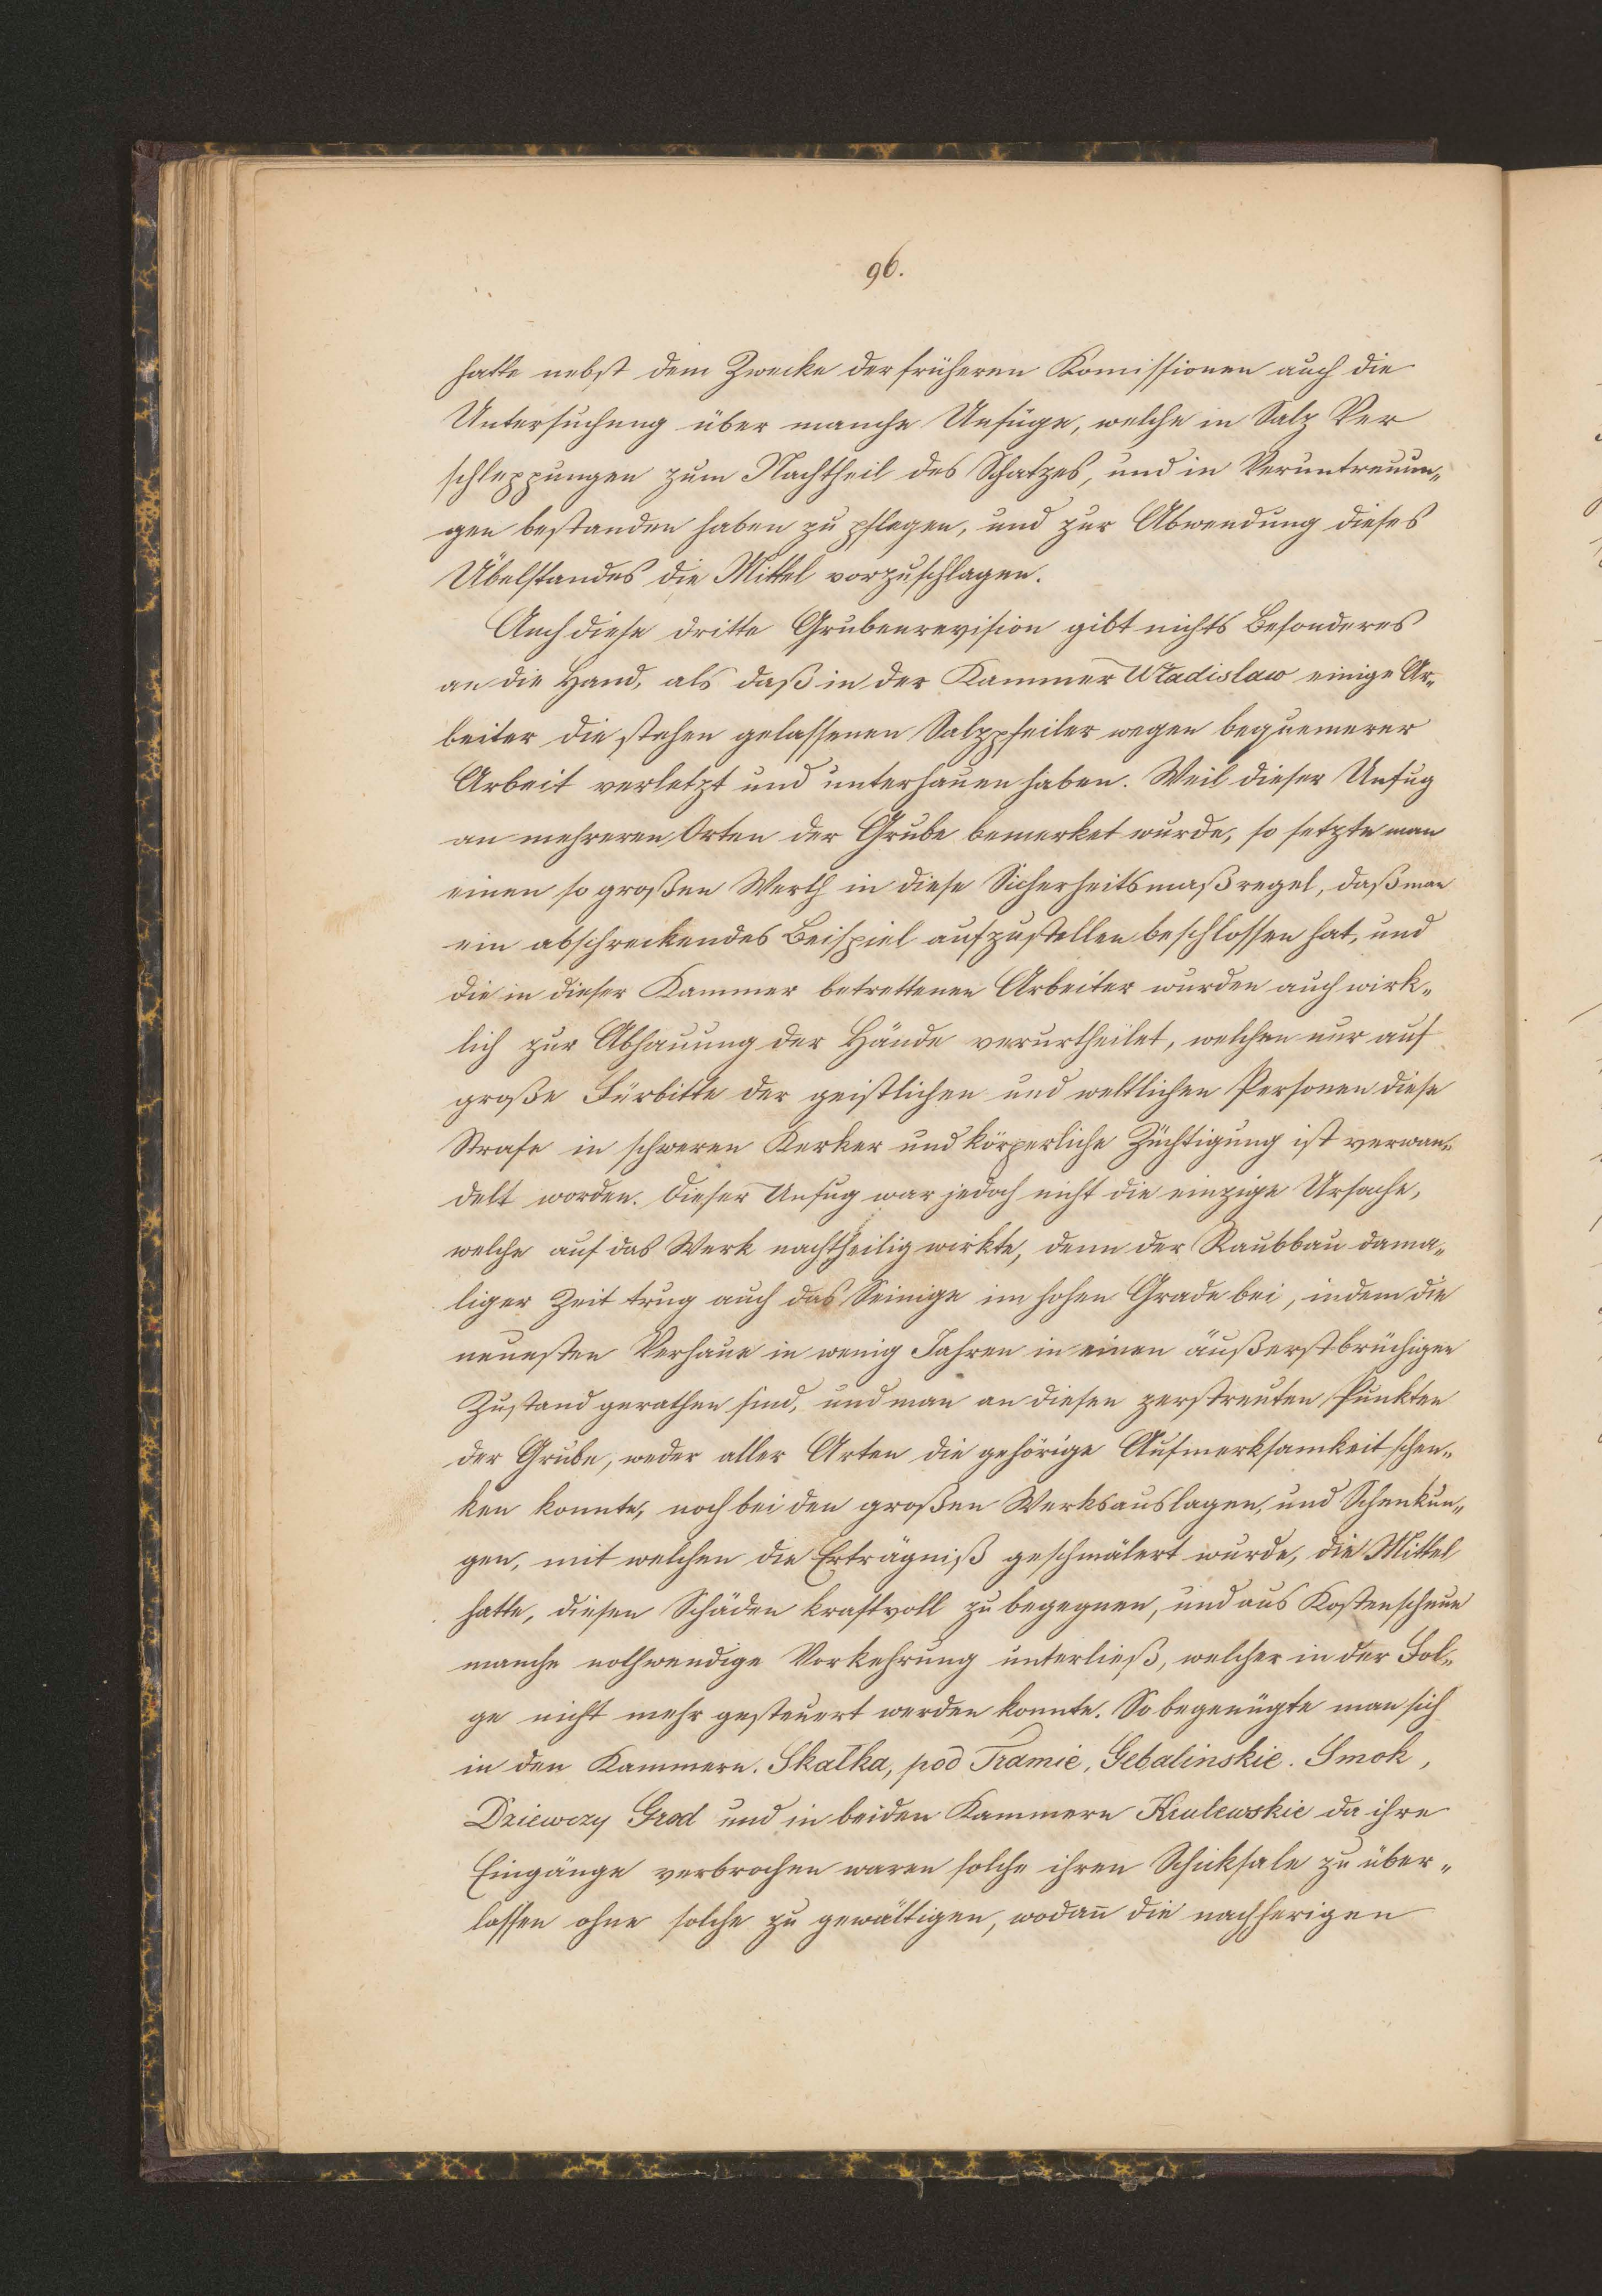 96.
hatte nebst dem Zwecke der früheren Komissionen auch die
Untersuchung über manche Unfüge, welche in Salz Ver
schleppungen zum Nachtheil des Schatzes, und in Veruntreuun„
gen bestanden haben zu pflegen, und zur Abwendung dieses
Übelstandes die Mittel vorzuschlagen.
Auch diese dritte Grubenrevision gibt nichts Besonderes
an die Hand, als daß in der Kammer Władislaw einige Ar„
beiter die stehen gelassenen Salzpfeiler wegen bequemerer
Arbeit verletzt und unterhauen haben. Weil dieser Unfug
an mehreren Orten der Grube bemerket wurde, so setzte man
einen so großen Werth in diese Sicherheitsmaßregel, daß man
ein abschreckendes Beispiel aufzustellen beschlossen hat, und
die in dieser Kammer betrettenen Arbeiter wurden auch wirk„
lich zur Abhauung der Hände verurtheilet, welchen nur auf
große Fürbitte der geistlichen und weltlichen Personen diese
Strafe in schweren Kerker und körperliche Züchtigung ist verwan„
delt worden. Dieser Unfug war jedoch nicht die einzige Ursache,
welche auf das Werk nachtheilig wirkte, denn der Raubbau dama„
liger Zeit trug auch das Seinige im hohen Grade bei, indem die
neuesten Verhaue in wenig Jahren in einen äußerst brüchigen
Zustand gerathen sind, und man an diesen zerstreuten Punkten
der Grube, weder aller Arten die gehörige Aufmerksamkeit schen„
ken konnte, noch bei den großen Werksauslagen, und Schenkun„
gen, mit welchen die Erträgniß geschmälert wurde, die Mittel
hatte, diesen Schäden kraftvoll zu begegnen, und aus Kostenscheue
manche nothwendige Vorkehrung unterließ, welcher in der Fol„
ge nicht mehr gesteuert werden konnte. So begenügte man sich
in den Kammern. Skałka, pod Tramie, Gebalinskie. Smok,
Dziewczy Grod und in beiden Kammern Krulewskie da ihre
Eingänge verbrochen waren solche ihren Schicksale zu über„
lassen ohne solche zu gewältigen, wodan̄ die nachherigen